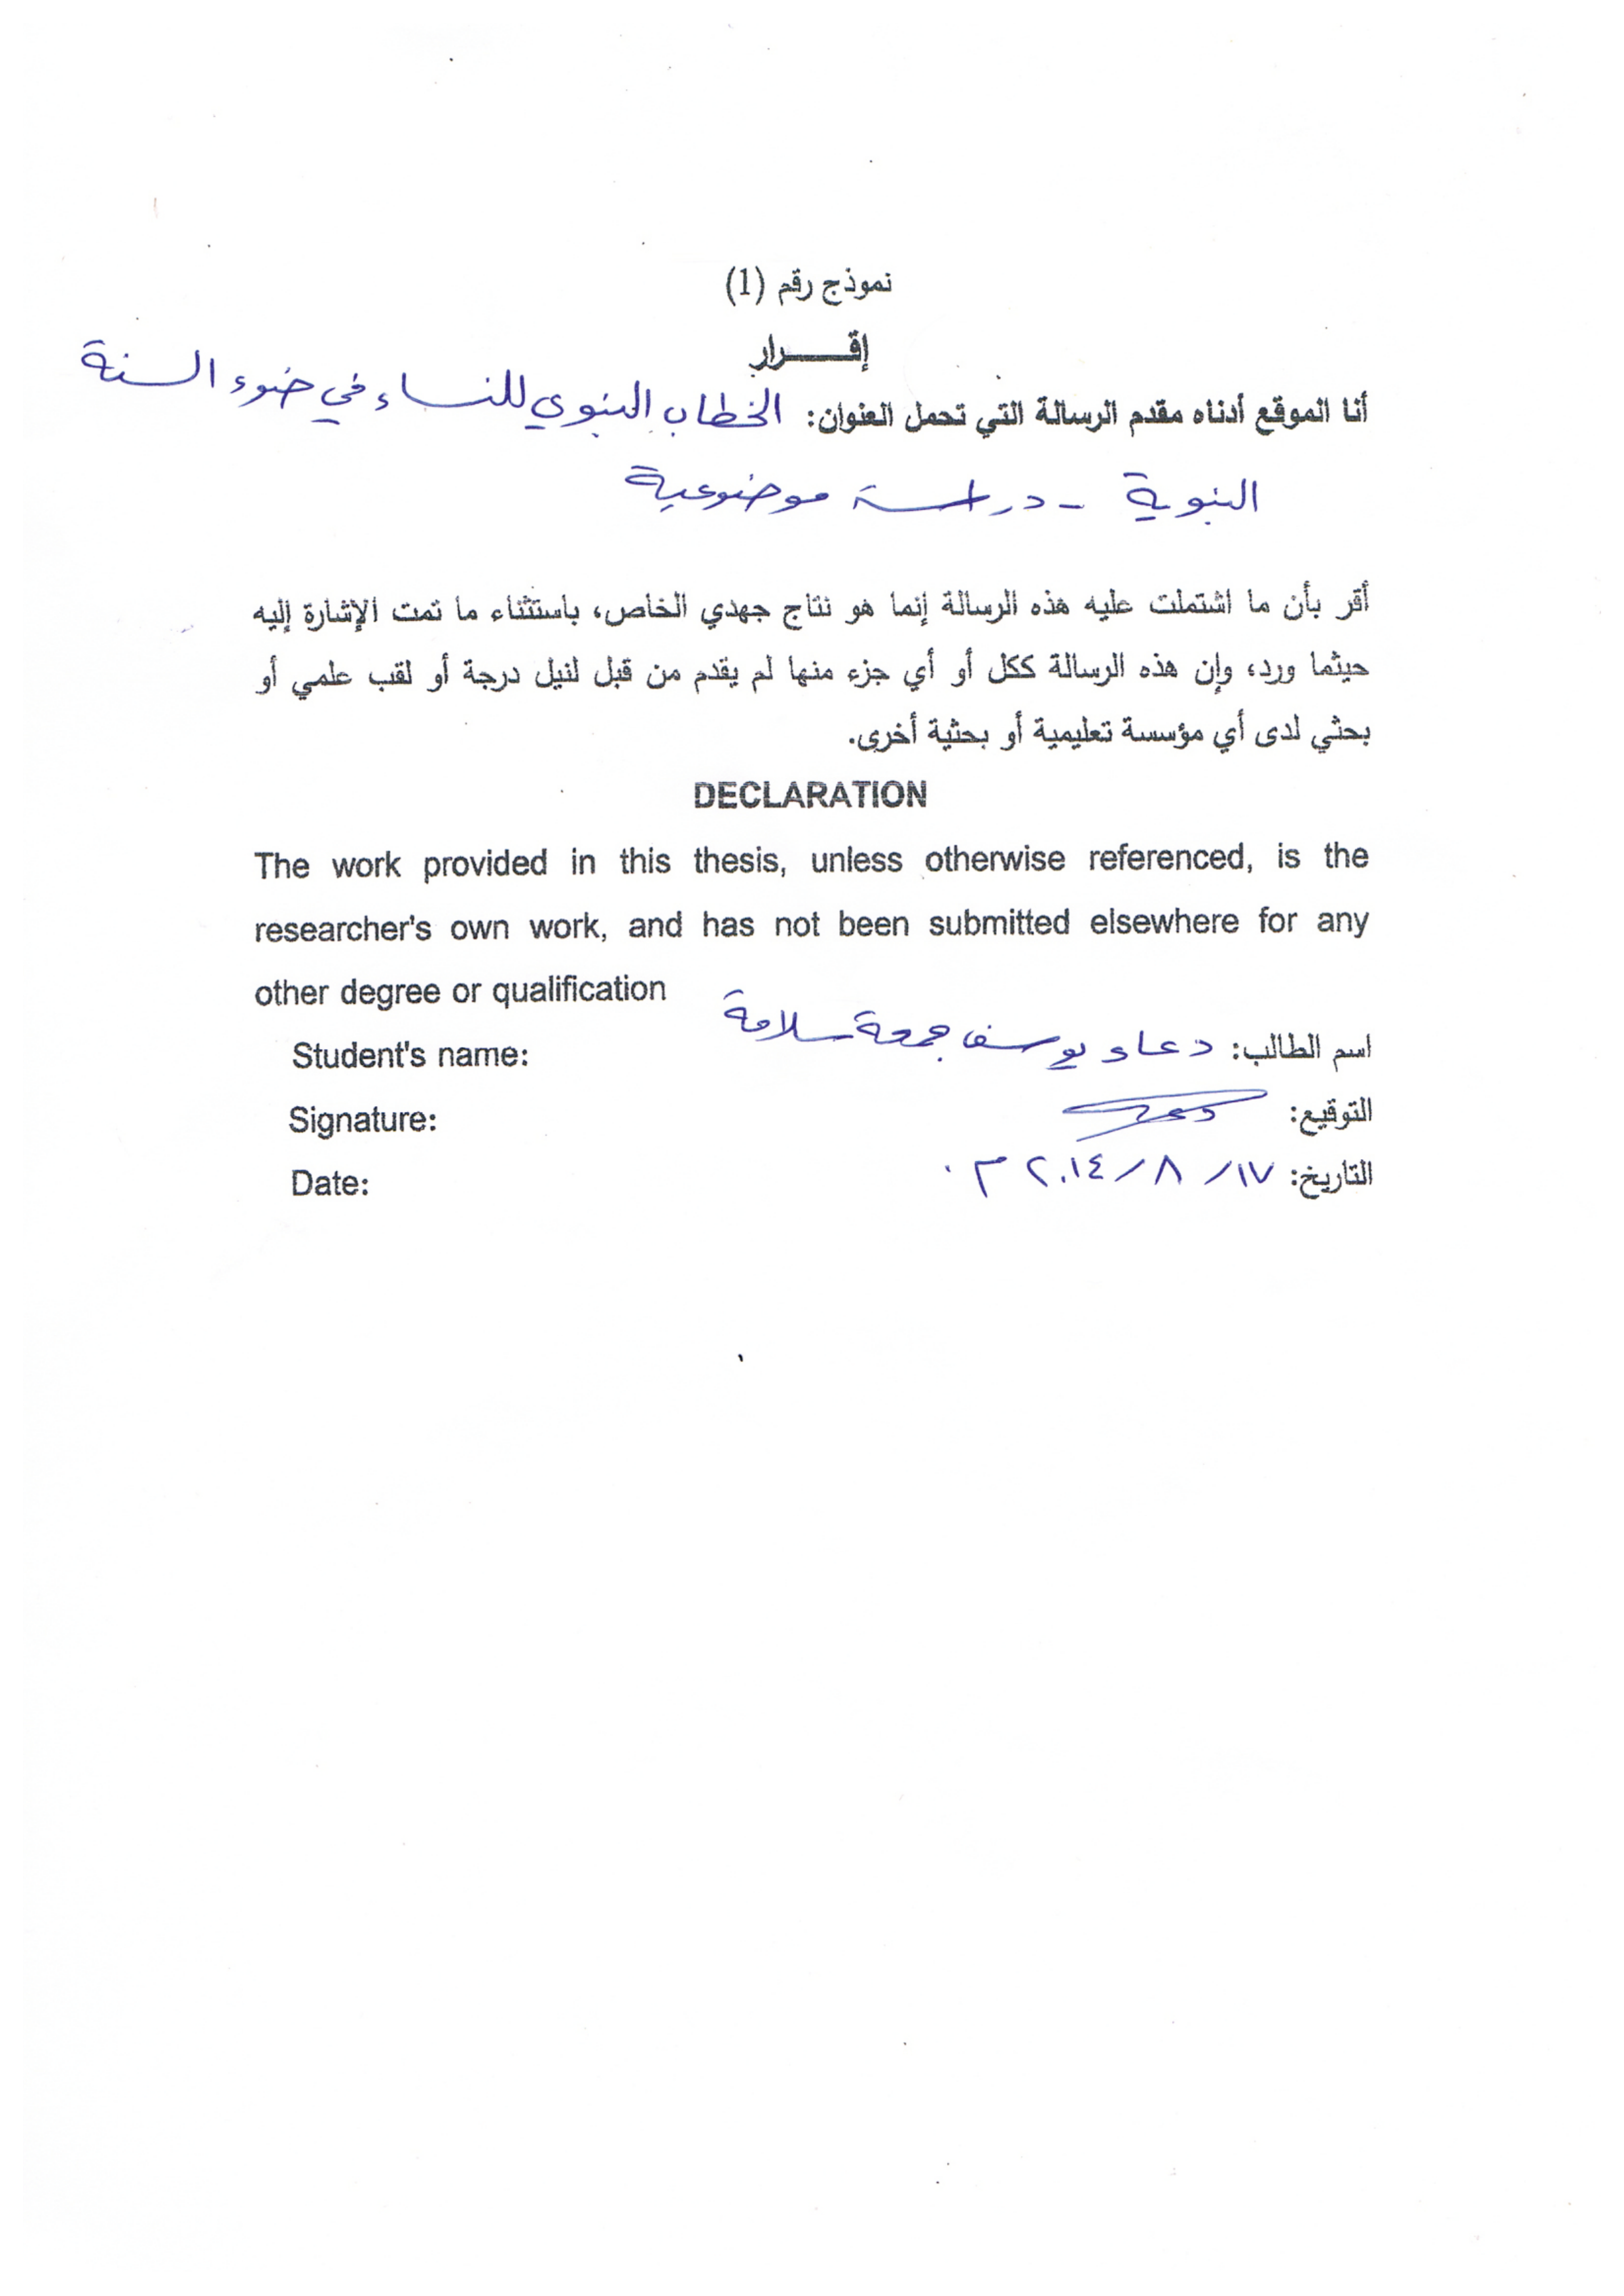 نموذج رقم (1)
إقـــــرار
أنا الموقع أدناه مقدم الرسالة التي تحمل العنوان: الخطاب النبوي للنساء في ضوء السنة
النبوية - دراسة موضوعية
أقر بأن ما اشتملت عليه هذه الرسالة إنما هو نتاج جهدي الخاص، باستثناء ما تمت الإشارة إليه
حيثما ورد، وإن هذه الرسالة ككل أو أي جزء منها لم يقدم من قبل لنيل درجة أو لقب علمي أو
بحثي لدى أي مؤسسة تعليمية أو بحثية أخرى.
DECLARATION
The work provided in this thesis, unless otherwise referenced, is the
researcher's own work, and has not been submitted elsewhere for any
other degree or qualification
Student's name: اسم الطالب: دعاء يوسف جمعة سلامة
Signature: التوقيع: دعاء
Date: التاريخ: ١٧/ ٨/ ٢٠١٤ م.